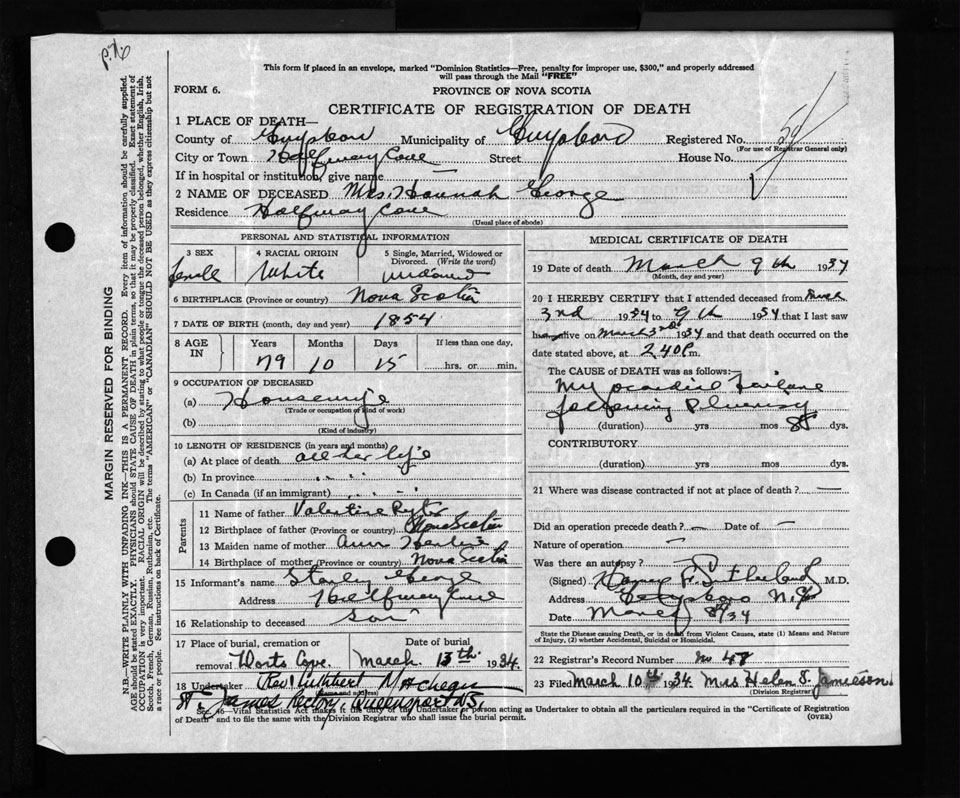 This form if placed in an envelope, marked "Dominion Statistics—Free, penalty for improper use, $300," and properly addressed
will pass through the Mail "FREE"
FORM 6.
PROVINCE OF NOVA SCOTIA
CERTIFICATE OF REGISTRATION OF DEATH
1 PLACE OF DEATH—
County of Guysboro Municipality of Guysboro Registered No.
(For use of Registrar General only)
City or Town Halfway Cove Street House No.
If in hospital or institution, give name
2 NAME OF DECEASED Mrs. Hannah George
Residence Halfway Cove
(Usual place of abode)
PERSONAL AND STATISTICAL INFORMATION
3 SEX
female
4 RACIAL ORIGIN
White
5 Single, Married, Widowed or
Divorced. (Write the word)
widowed
6 BIRTHPLACE (Province or country) Nova Scotia
7 DATE OF BIRTH (month, day and year) 1854
8 AGE IN
Years Months Days If less than one day,
79 10 15 hrs. or min.
9 OCCUPATION OF DECEASED
(a) Housewife
(Trade or occupation of kind of work)
(b)
(Kind of industry)
10 LENGTH OF RESIDENCE (in years and months)
(a) At place of death all her life
(b) In province
(c) In Canada (if an immigrant)
Parents
11 Name of father Valentine
12 Birthplace of father (Province or country) Nova Scotia
13 Maiden name of mother Ann
14 Birthplace of mother (Province or country) Nova Scotia
15 Informant's name Stanley George
Address Halfway Cove
16 Relationship to deceased Son
17 Place of burial, cremation or Date of burial
removal Horts Cove March 13th 1934.
18 Undertaker Rev Cuthbert
(Name and address)
St. James Rectory, Queensport N.S.
MEDICAL CERTIFICATE OF DEATH
19 Date of death March 9th 1934
(Month, day and year)
20 I HEREBY CERTIFY that I attended deceased from March
3rd 1934 to 9th 1934 that I last saw
h alive on March 3rd 1934 and that death occurred on the
date stated above, at 2.40 P m.
The CAUSE of DEATH was as follows:
Myocardial Failure
following Pleurisy
(duration) yrs mos 8 dys.
CONTRIBUTORY
(duration) yrs mos. dys.
21 Where was disease contracted if not at place of death? —
Did an operation precede death? — Date of —
Nature of operation —
Was there an autopsy?
(Signed) Sutherland M.D.
Address Guysboro N.S.
Date March 34
State the Disease causing Death, or in death from Violent Causes, state (1) Means and Nature
of Injury, (2) whether Accidental, Suicidal or Homicidal.
22 Registrar's Record Number No 48
23 Filed March 10th 1934. Mrs Helen S. Jamieson.
(Division Registrar)
Sec. 46—Vital Statistics Act makes it the duty of the Undertaker or person acting as Undertaker to obtain all the particulars required in the "Certificate of Registration
of Death" and to file the same with the Division Registrar who shall issue the burial permit. (OVER)
MARGIN RESERVED FOR BINDING
N.B.—WRITE PLAINLY WITH UNFADING INK—THIS IS A PERMANENT RECORD. Every item of information should be carefully supplied.
AGE should be stated EXACTLY. PHYSICIANS should STATE CAUSE OF DEATH in plain terms, so that it may be properly classified. Exact statement of
OCCUPATION is very important. RACIAL ORIGIN will be described by stating to what people or tongue the deceased person belonged, whether English, Irish,
Scotch, French, German, Russian, Ruthenian, etc. The terms "AMERICAN" or "CANADIAN" SHOULD NOT BE USED as they express citizenship but not
a race or people. See instructions on back of Certificate.